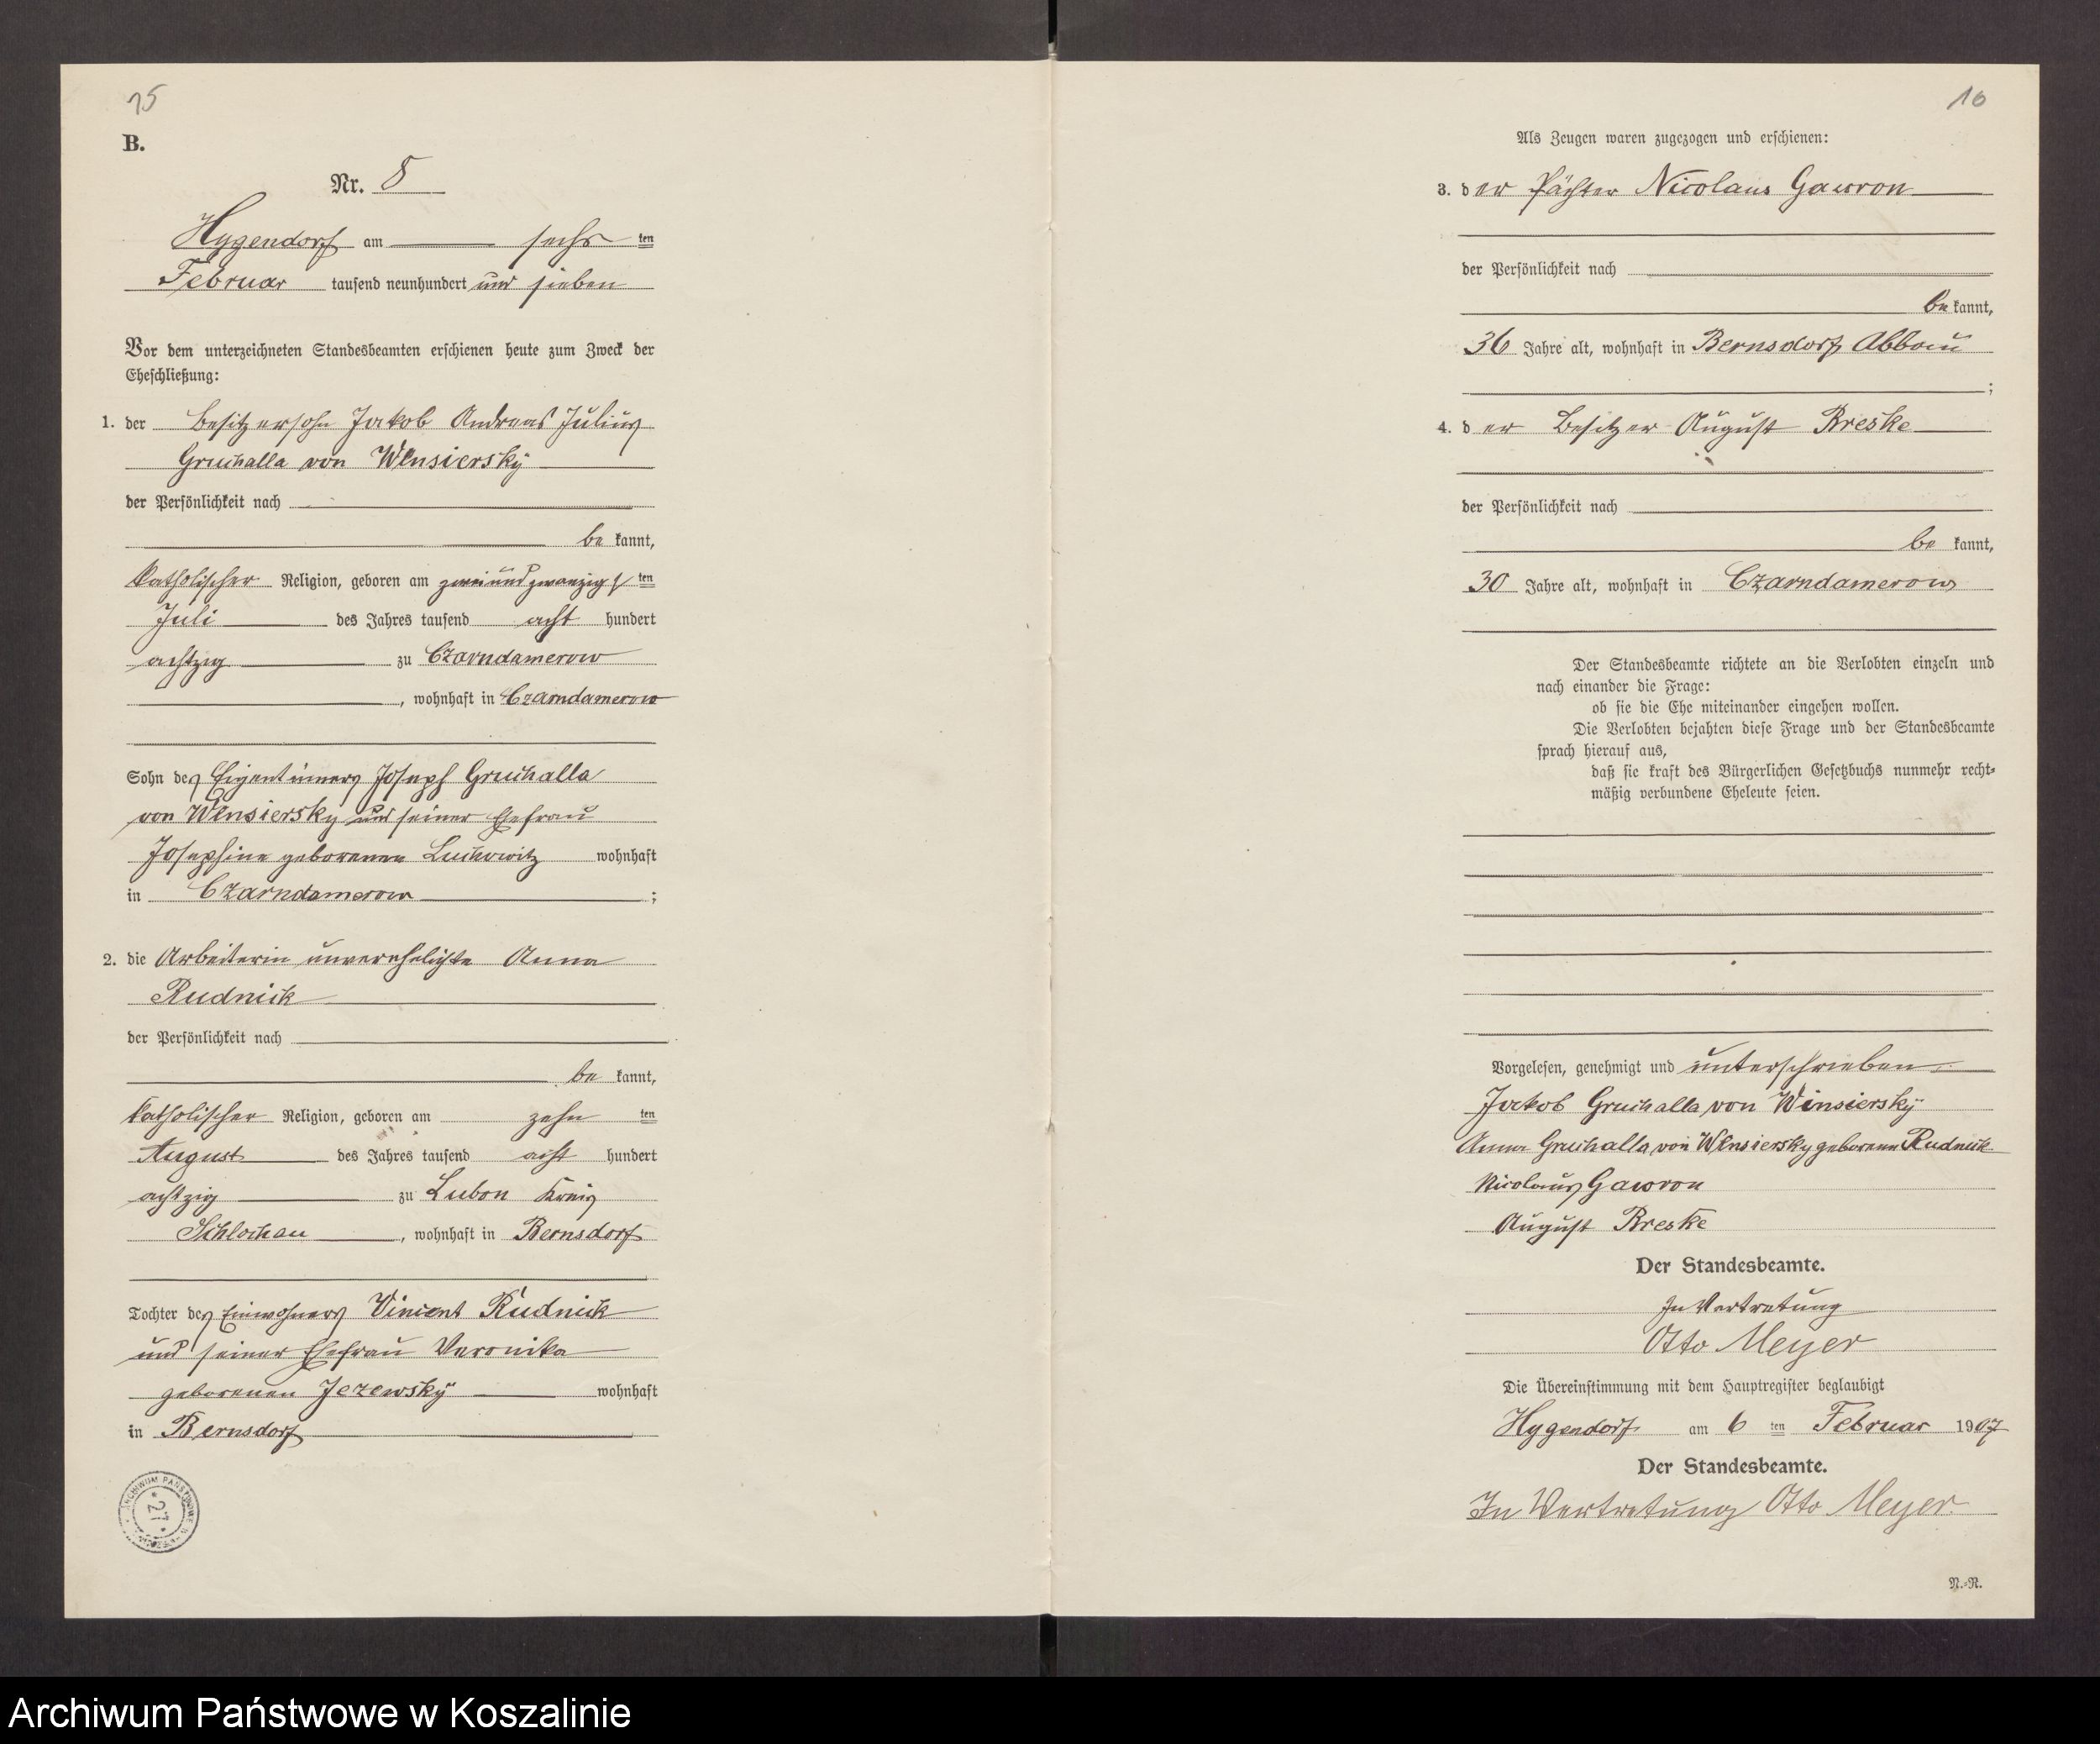 15
B.
Nr. 8
Hygendorf am sechsten
Februar tausend neunhundert und sieben
Vor dem unterzeichneten Standesbeamten erschienen heute zum Zweck der
Eheschließung:
1. der Besitzersohn Jakob Andreas Julius
Gruchalla von Wensiersky
der Persönlichkeit nach
bekannt,
katholischer Religion, geboren am zweiundzwanzigsten
Juli des Jahres tausend acht hundert
achtzig zu Czarndamerow
, wohnhaft in Czarndamerow
Sohn des Eigentümers Joseph Gruchalla
von Wensiersky und seiner Ehefrau
Josephine geborenen wohnhaft
in Czarndamerow ;
2. die Arbeiterin unverehelichte Anna
Rudnick
der Persönlichkeit nach
bekannt,
katholischer Religion, geboren am zehnten
August des Jahres tausend acht hundert
achtzig zu Lubon Kreis
Schlochau , wohnhaft in Bernsdorf
Tochter des Einwohners Vincent Rudnick
und seiner Ehefrau Veronika
geborenen Jezewsky wohnhaft
in Bernsdorf
ARCHIWUM PAŃSTWOWE
27
10
Als Zeugen waren zugezogen und erschienen:
3. der Pächter Nicolaus Gawron
der Persönlichkeit nach
bekannt,
36 Jahre alt, wohnhaft in Bernsdorf Abbau
;
4. der Besitzer August Breske
der Persönlichkeit nach
bekannt,
30 Jahre alt, wohnhaft in Czarndamerow
Der Standesbeamte richtete an die Verlobten einzeln und
nach einander die Frage:
ob sie die Ehe miteinander eingehen wollen.
Die Verlobten bejahten diese Frage und der Standesbeamte
sprach hierauf aus,
daß sie kraft des Bürgerlichen Gesetzbuchs nunmehr recht-
mäßig verbundene Eheleute seien.
Vorgelesen, genehmigt und unterschrieben
Jakob Gruchalla von Winsiersky
Anna Gruchalla von Wensiersky geborene Rudnick
Nicolaus Gawron
August Breske
Der Standesbeamte.
In Vertretung
Otto Meyer
Die Übereinstimmung mit dem Hauptregister beglaubigt
Hygendorf am 6 ten Februar 1907
Der Standesbeamte.
In Vertretung Otto Meyer
N.-R.
Archiwum Państwowe w Koszalinie